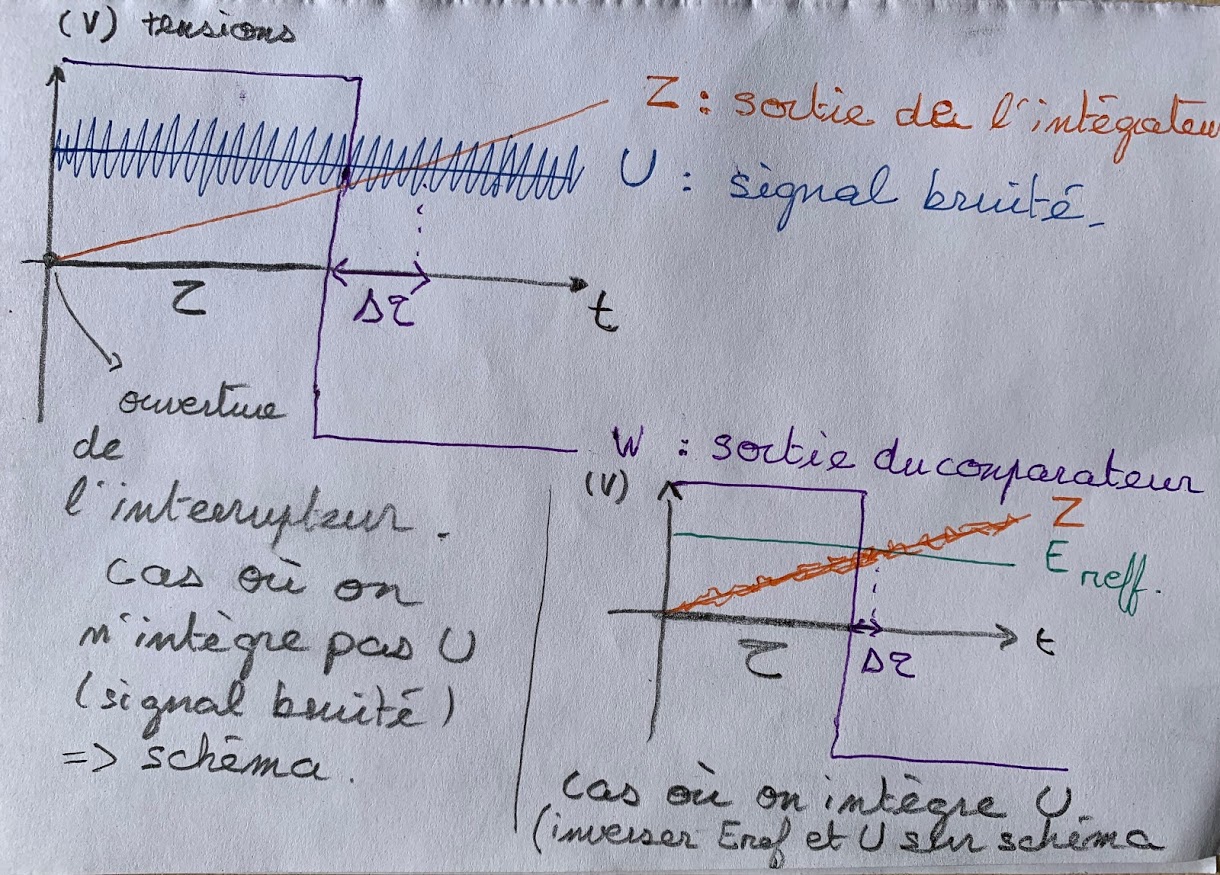 (V) tensions
Z : sortie de l'intégateu
U : signal bruité.
τ
Δτ
t
ouverture
de
l'interrupteur.
W : sortie du comparateur
cas où on
n'intègre pas U
(signal bruité)
=> schéma.
(V)
Z
E reff.
τ
Δτ
t
cas où on intègre U.
(inverser Eref et U sur schéma